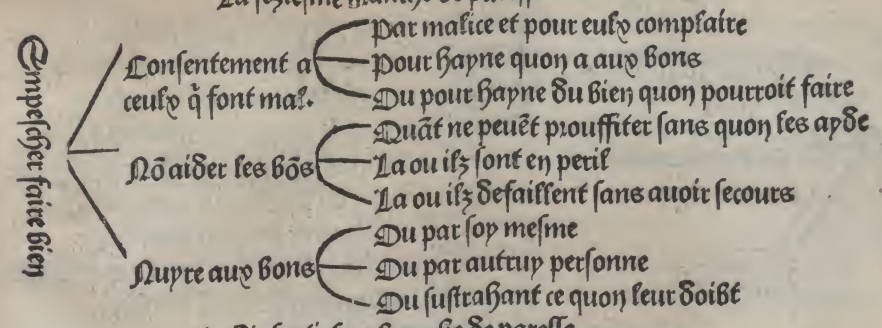 Empescher faire bien
Consentement a
ceulx q̃ font mal.
Par malice et pour eulx complaire
Pour hayne quon a aux bons
Ou pour hayne du bien quon pourroit faire
Nō aider les bōs
Quāt ne peuēt prouffiter sans quon les ayde
La ou ilz sont en peril
La ou ilz defaillent sans auoir secours
Nuyre aux bons
Ou par soy mesme
Ou par autruy personne
Ou sustrahant ce quon leur doibt